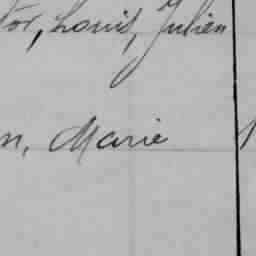 tor, Louis, Julien
n, Marie